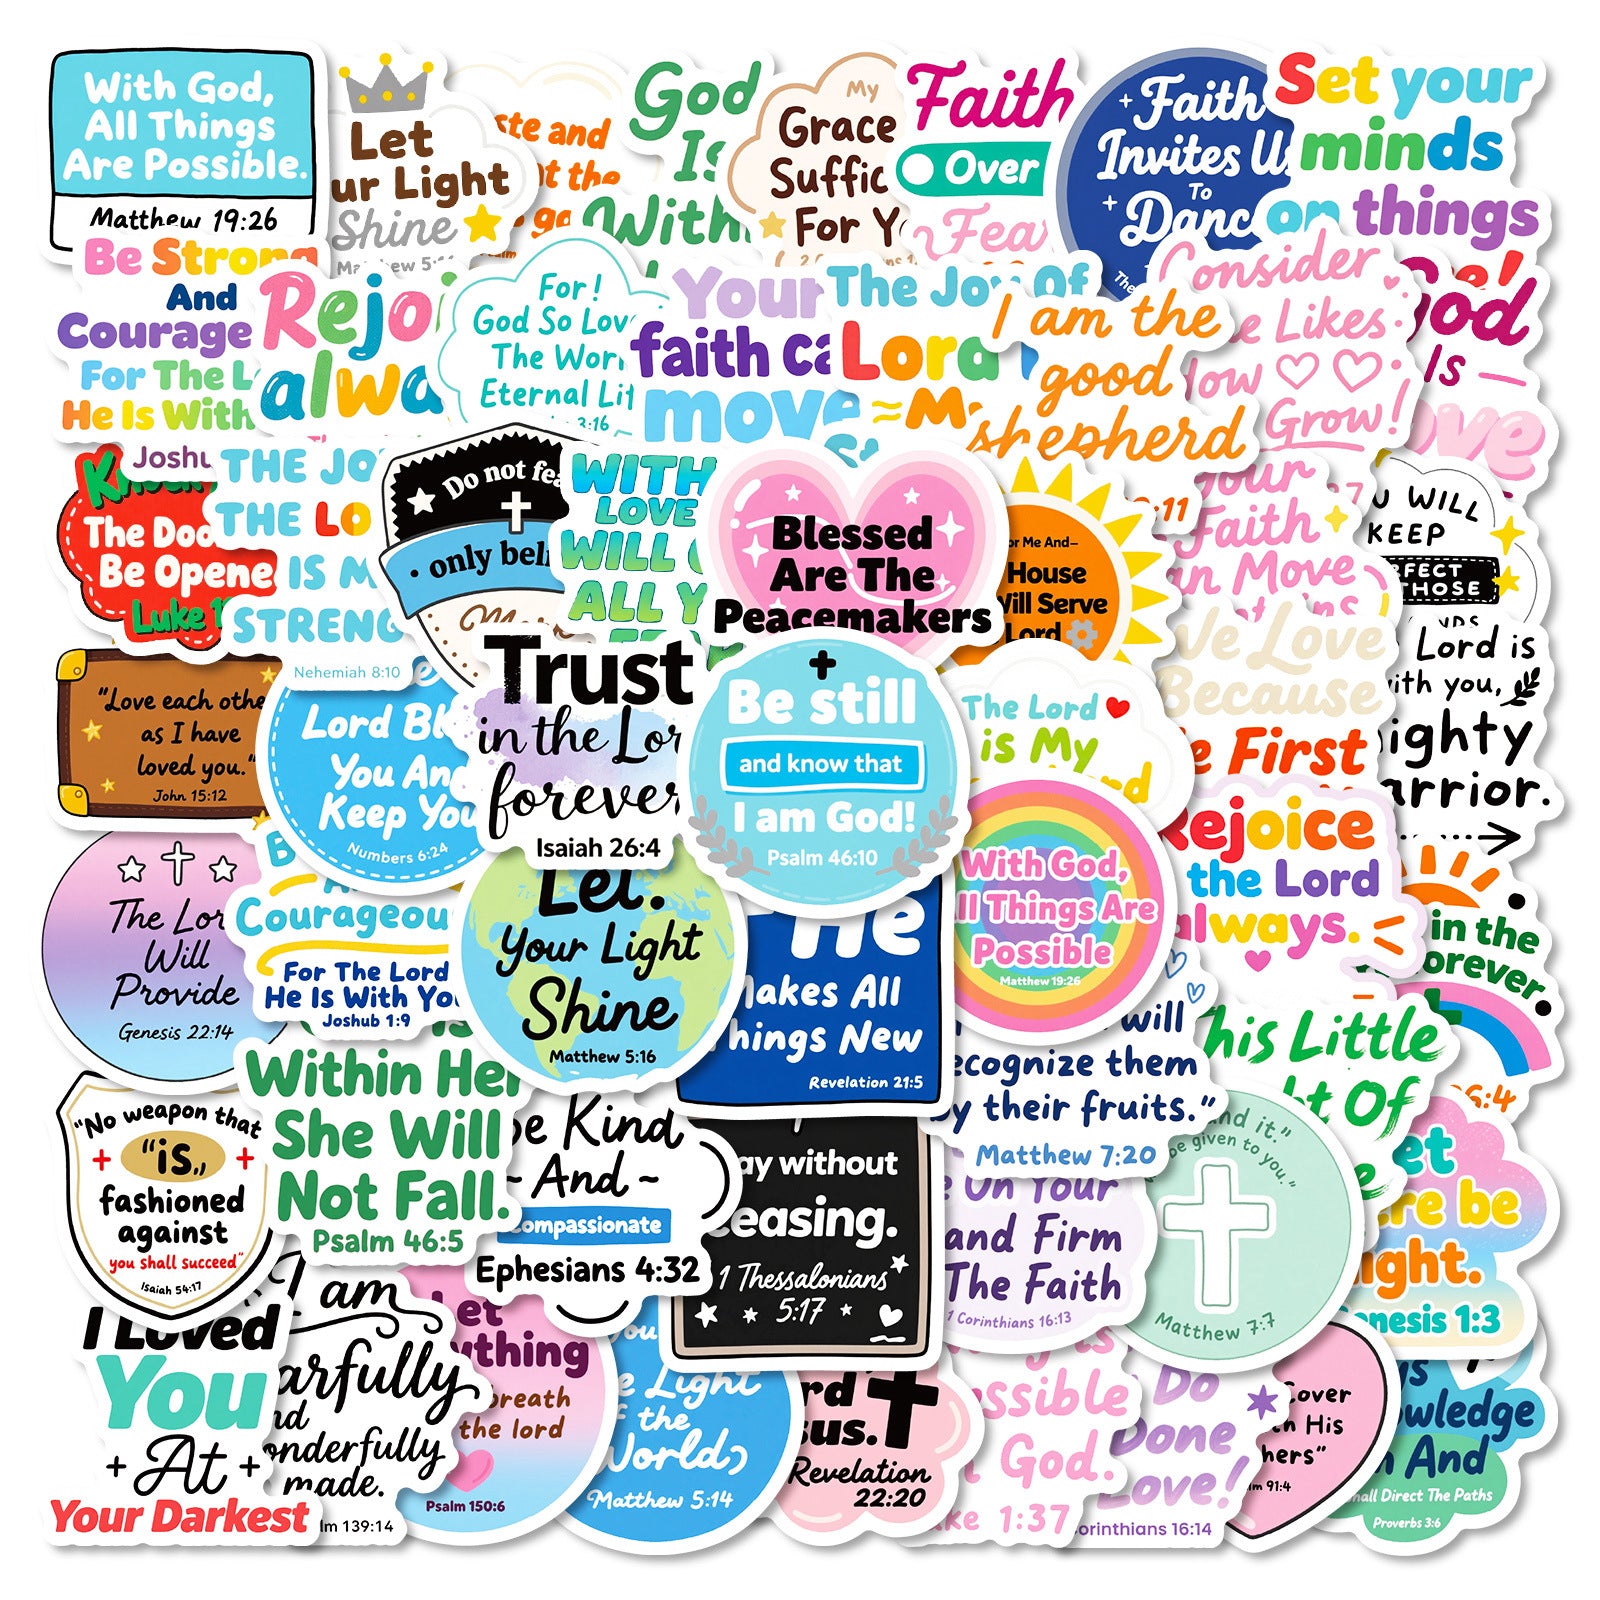 With God,
All Things
Are Possible.
Matthew 19:26
Let
ur Light
Shine
ste and
t the
go
God
Is
With
My
Grace
Suffic
For Y
Faith
Over
Fear
Faith
Invites U
To
Danc
The
Set your
minds
on things
Be Strong
And
Courage
For The L
He Is With
Joshu
Rejoi
alwa
For!
God So Lov
The Wor
Eternal Lif
3:16
Your
faith ca
move
The Joy Of
Lord
I am the
good
shepherd
:11
Consider
e Likes
low
Grow!
God
Is
ove
The Doo
Be Opene
Luke 1
THE JO
THE LO
IS M
STRENG
Nehemiah 8:10
Do not fea
only beli
WITH
LOVE
WILL
ALL Y
Blessed
Are The
Peacemakers
or Me And-
House
Will Serve
Lord
your
Faith
an Move
U WILL
KEEP
RFECT
THOSE
"Love each othe
as I have
loved you."
John 15:12
Lord Bl
You And
Keep You
Numbers 6:24
Trust
in the Lor
forever
Isaiah 26:4
Be still
and know that
I am God!
Psalm 46:10
The Lord
is My
We Love
Because
e First
Lord is
with you,
ighty
arrior.
The Lor
Will
Provide
Genesis 22:14
Courageou
For The Lord
He Is With You
Joshub 1:9
Let.
Your Light
Shine
Matthew 5:16
He
Makes All
Things New
Revelation 21:5
With God,
ll Things Are
Possible
Matthew 19:26
Rejoice
the Lord
always.
in the
forever.
6:4
"No weapon that
"is"
fashioned
against
you shall succeed"
Isaiah 54:17
Within Her
She Will
Not Fall.
Psalm 46:5
Be Kind
And
compassionate
Ephesians 4:32
ay without
ceasing.
1 Thessalonians
5:17
will
recognize them
by their fruits."
Matthew 7:20
e On Your
and Firm
The Faith
1 Corinthians 16:13
This Little
ht Of
nd it."
be given to you."
Matthew 7:7
Let
ere be
light.
enesis 1:3
I Loved
You
At
Your Darkest
I am
arfully
nd
onderfully
made.
lm 139:14
Let
ything
breath
the lord
Psalm 150:6
You
e Light
f the
World
Matthew 5:14
rd
sus.
Revelation
22:20
ssible
God.
ke 1:37
Do
Done
Love!
orinthians 16:14
Cover
h His
hers"
lm 91:4
wledge
And
hall Direct The Paths
Proverbs 3:6